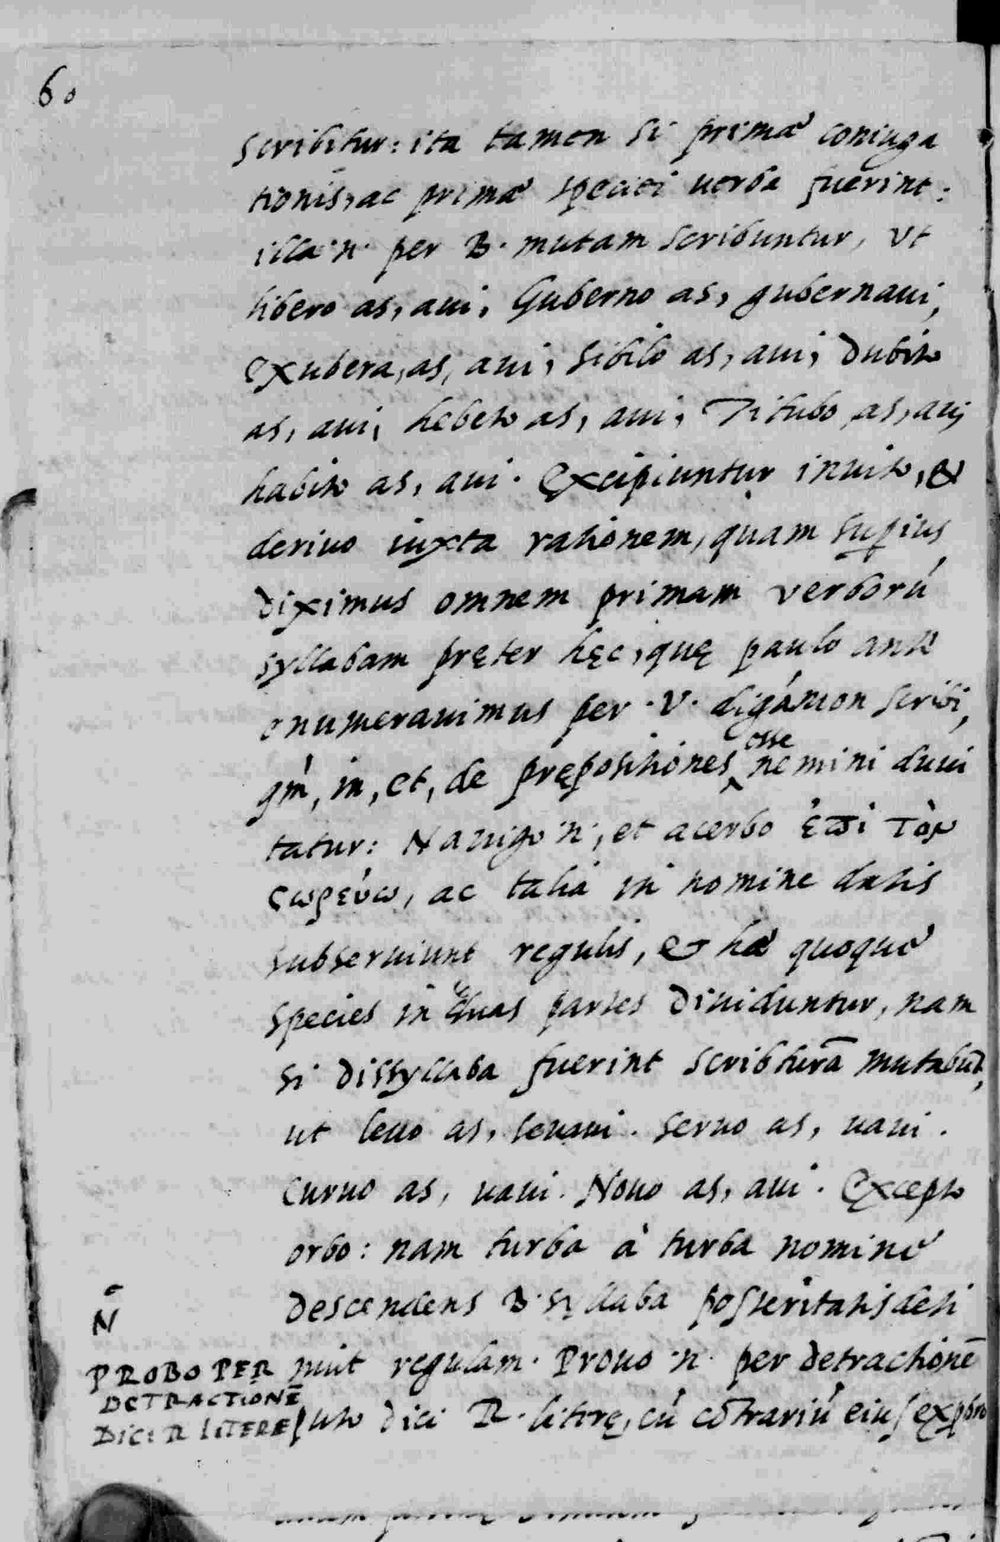 60
scribitur: ita tamen si primæ coniuga
tionis, ac primæ speciei uerba fuerint:
illa .n. per B. mutam scribuntur, vt
libero as, aui, Guberno as, gubernaui,
exubera, as, aui, sibilo as, aui, dubito
as, aui, hebeto as, aui, Titubo as, aui
habito as, aui. Excipiuntur inuito, &
deriuo iuxta rationem, quam supius
diximus omnem primam verború
syllabam pręter hęc, quę paulo ante
enumerauimus per .V. digámon scribi,
qm̃, in, et, de prępositiones esse nemini duui
tatur: Nauigo .n., et acerbo ἐπὶ τὸν
σωρεύω, ac talia in nomine datis
subseruiunt regulis, & hæ quoque
species in duas partes diuiduntur, nam
si dissyllaba fuerint scribturā mutabūt,
ut leuo as, leuaui. seruo as, uaui.
curuo as, uaui. Nouo as, aui. Excepto
orbo: nam turbo à turba nomine
descendens B. syllaba posteritatis deti
N̄
nuit regulam. Prouo .n. per detractionē
PROBO PER
DETRACTIONĒ
DICI R LITERE
puto dici R. literę, cú cōtrariú eius